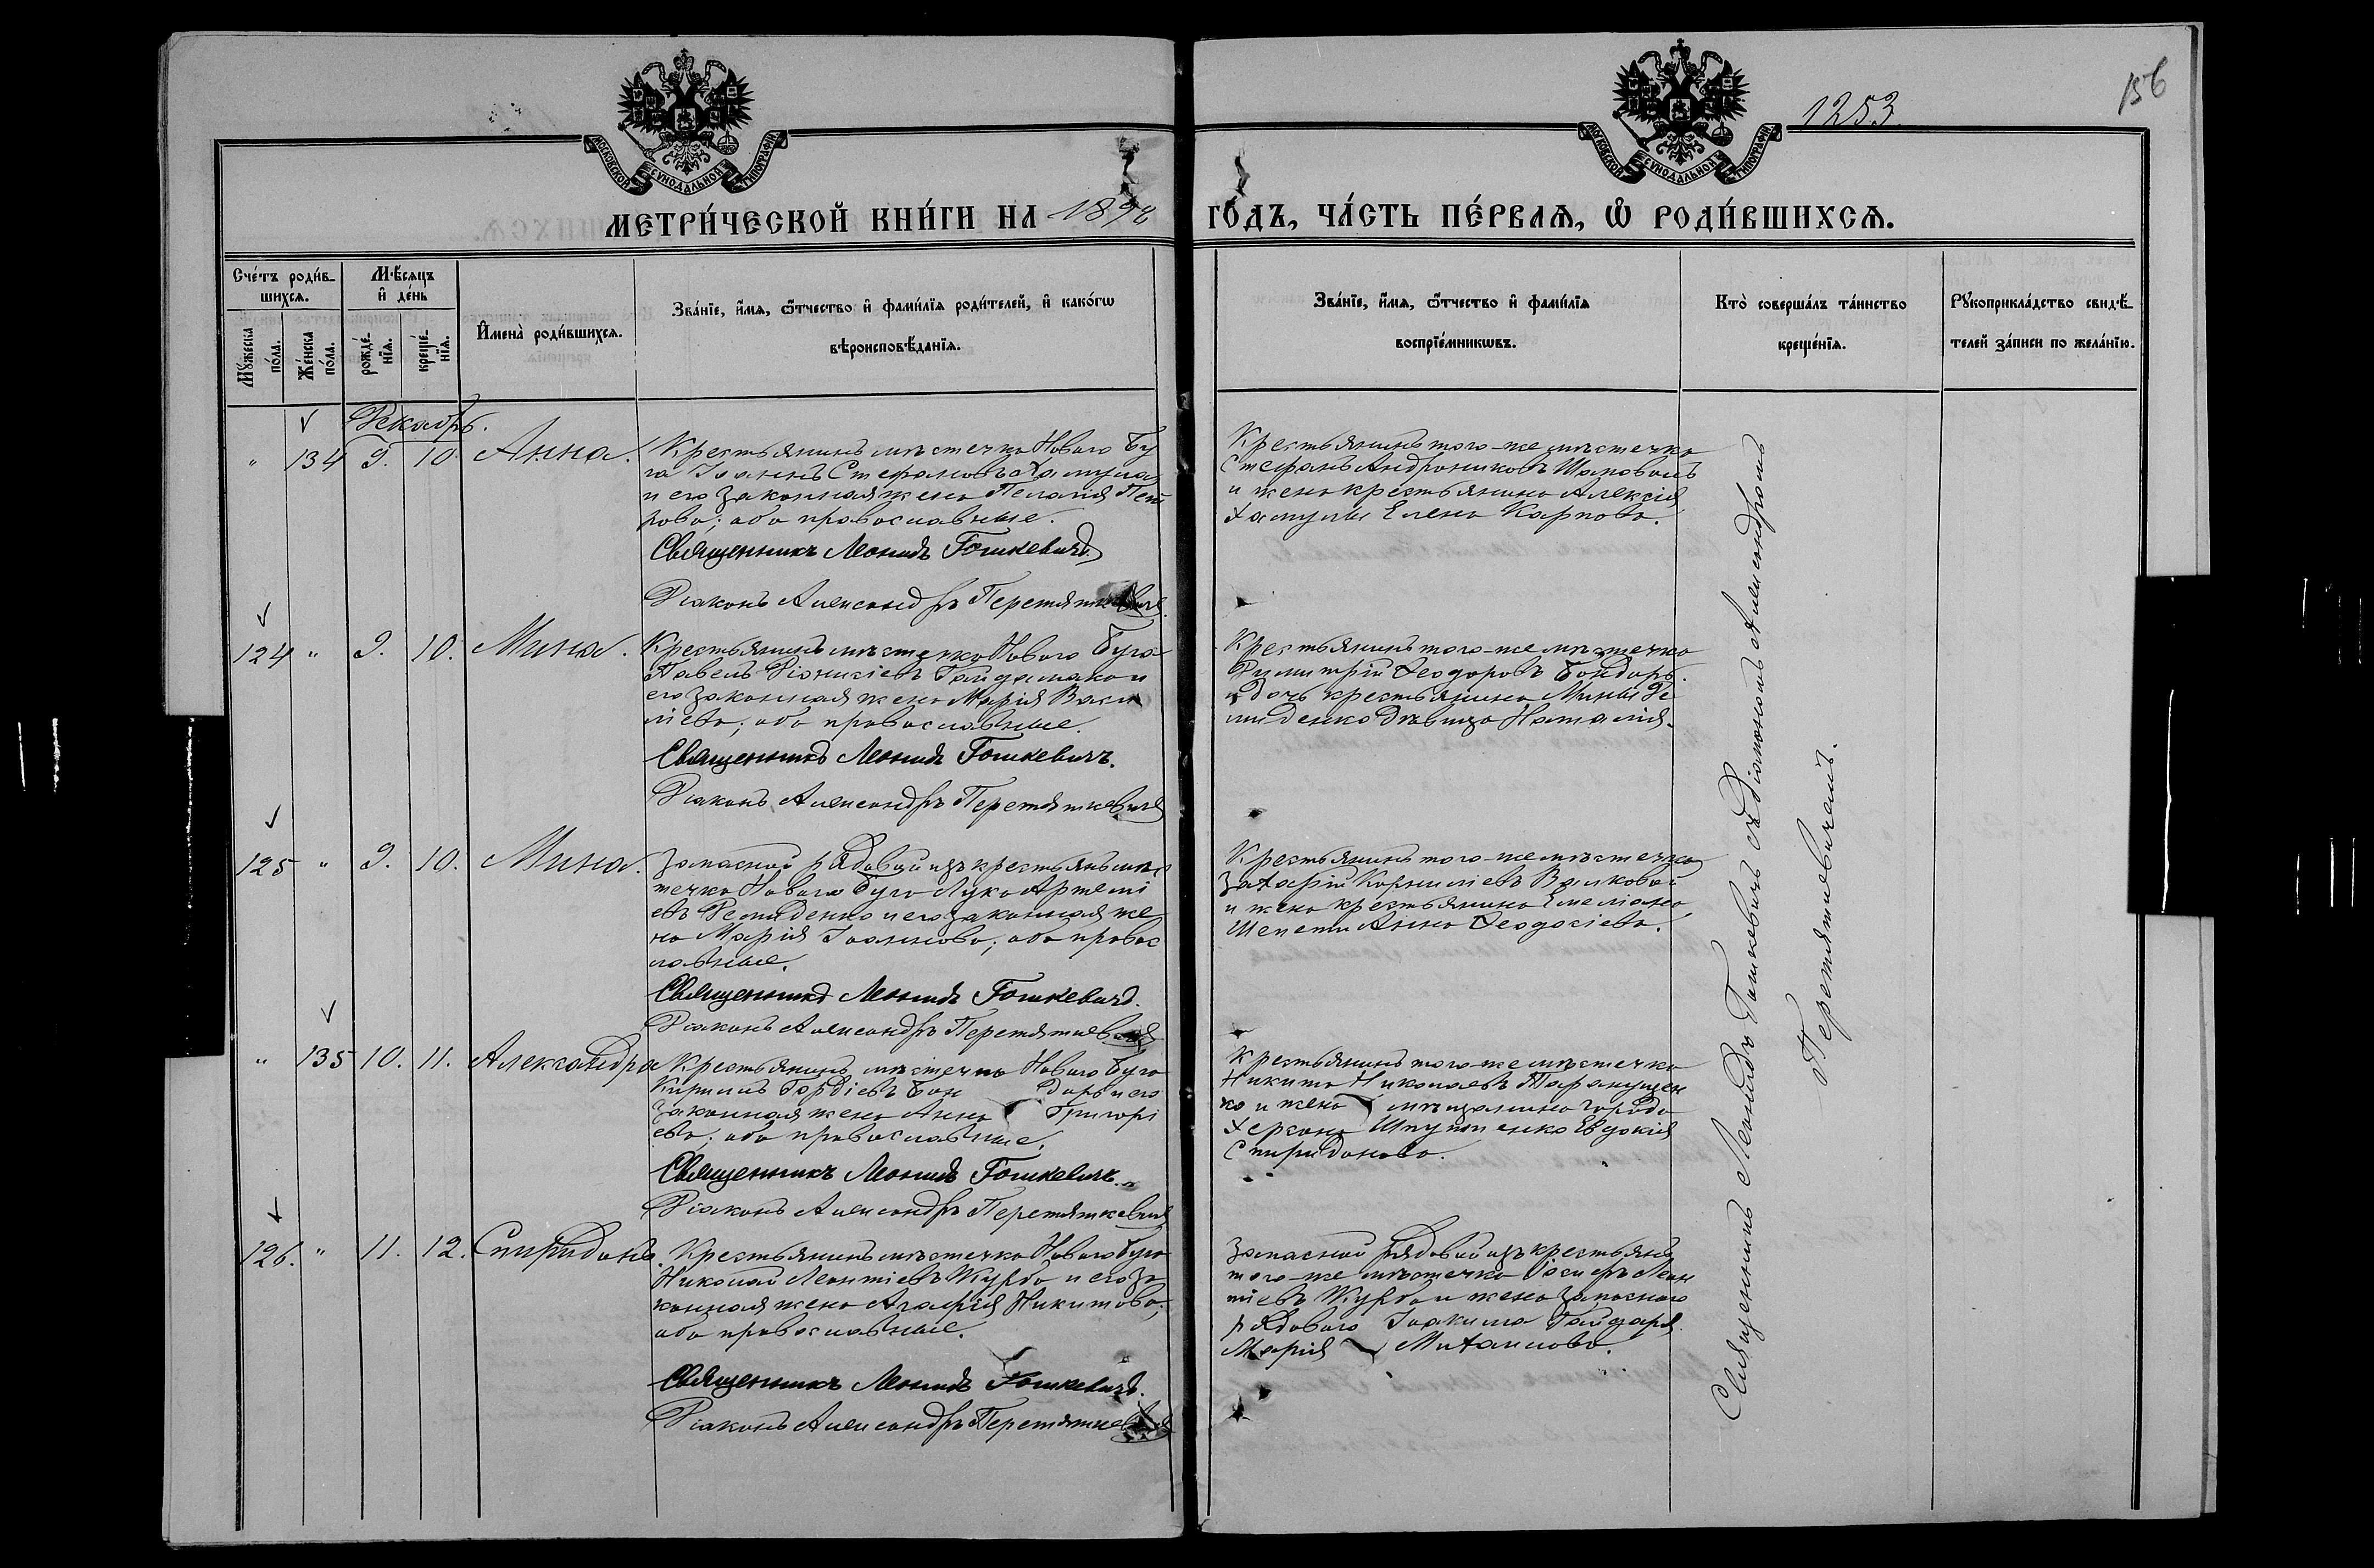 1253
156
МОСКОВСКОЙ СѴНОДАЛЬНОЙ ТИПОГРАФІИ
МОСКОВСКОЙ СѴНОДАЛЬНОЙ ТИПОГРАФІИ
МЕТРИ́ЧЕСКОЙ КНИ́ГИ НА 1898
ГО́ДЪ, ЧА́СТЬ ПЕ́РВАѦ, Ѡ҆ РОДИ́ВШИХСѦ.
Сче́тъ роди́в-
шихсѧ.
Мꙋ́жеска по́ла.
Же́нска по́ла.
Мѣ́сѧцъ
и҆ де́нь
рожде́-
нїѧ.
креще́-
нїѧ.
И҆мена̀ роди́вшихсѧ.
Зва́нїе, и҆́мѧ, ѻ҆́тчество и҆ фами́лїѧ роди́телей, и҆ како́гѡ
вѣроисповѣ́данїѧ.
Зва́нїе, и҆́мѧ, ѻ҆́тчество и҆ фами́лїѧ
воспрїе́мникѡвъ.
Кто̀ соверша́лъ та́инство
креще́нїѧ.
Рꙋкоприкла́дство свидѣ́-
телей за́писи по жела́нїю.
Декабрь.
" 134 9. 10. Анна.
Крестьянинъ мѣстечка Новаго Бу
га Іоаннъ Стефановъ Хамула
и его законная жена Пелагія Пет
рова; оба православные.
Священникъ Леонидъ Гошкевичъ
Діаконъ Александръ Перетяткевичъ
Крестьянинъ того-же мѣстечка
Стефанъ Андрониковъ Шаповалъ
и жена крестьянина Алексія
Хамулы Елена Карпова.
124 " 9. 10. Мина.
Крестьянинъ мѣстечка Новаго Буга
Павелъ Діонисіевъ Гайдамака и
его законная жена Марія Васи
ліева; оба православные.
Священникъ Леонидъ Гошкевичъ.
Діаконъ Александръ Перетяткевичъ
Крестьянинъ того-же мѣстечка
Димитрій Ѳеодоровъ Бондарь.
и дочь крестьянина Мины Де
миденко дѣвица Наталія.
125 " 9. 10. Мина.
Запасной рядовой изъ крестьянъ мѣс
течка Новаго Буга Лука Артемі
евъ Демиденко и его законная же
на Марія Іоаннова; оба правос
лавные.
Священникъ Леонидъ Гошкевичъ.
Діаконъ Александръ Перетяткевичъ
Крестьянинъ того-же мѣстечка
Захарій Корниліевъ Валковой
и жена крестьянина Емеліана
Шепети Анна Ѳеодосіева.
" 135 10. 11. Александра
Крестьянинъ мѣстечка Новаго Буга
Кириллъ Гордіевъ Бон даръ и его
законная жена Анна Григорі
ева; оба православные.
Священникъ Леонидъ Гошкевичъ.
Діаконъ Александръ Перетяткевичъ
Крестьянинъ того-же мѣстечка
Никита Николаевъ Таранущен
ко и жена мѣщанина города
Херсона Евдокія
Спиридонова.
126. " 11. 12. Спиридонъ.
Крестьянинъ мѣстечка Новаго Буга
Николай Леонтіевъ Журба и его за
конная жена Агафія Никитова;
оба православные.
Священникъ Леонидъ Гошкевичъ.
Діаконъ Александръ Перетяткевичъ
Запасной рядовой изъ крестьянъ
того-же мѣстечка Іосифъ Леон
тіевъ Журба и жена запаснаго
рядоваго Іоакима Гайдаря
Марія Михаилова.
Священникъ Леонидъ Гошкевичъ съ діакономъ Александромъ
Перетяткевичемъ.